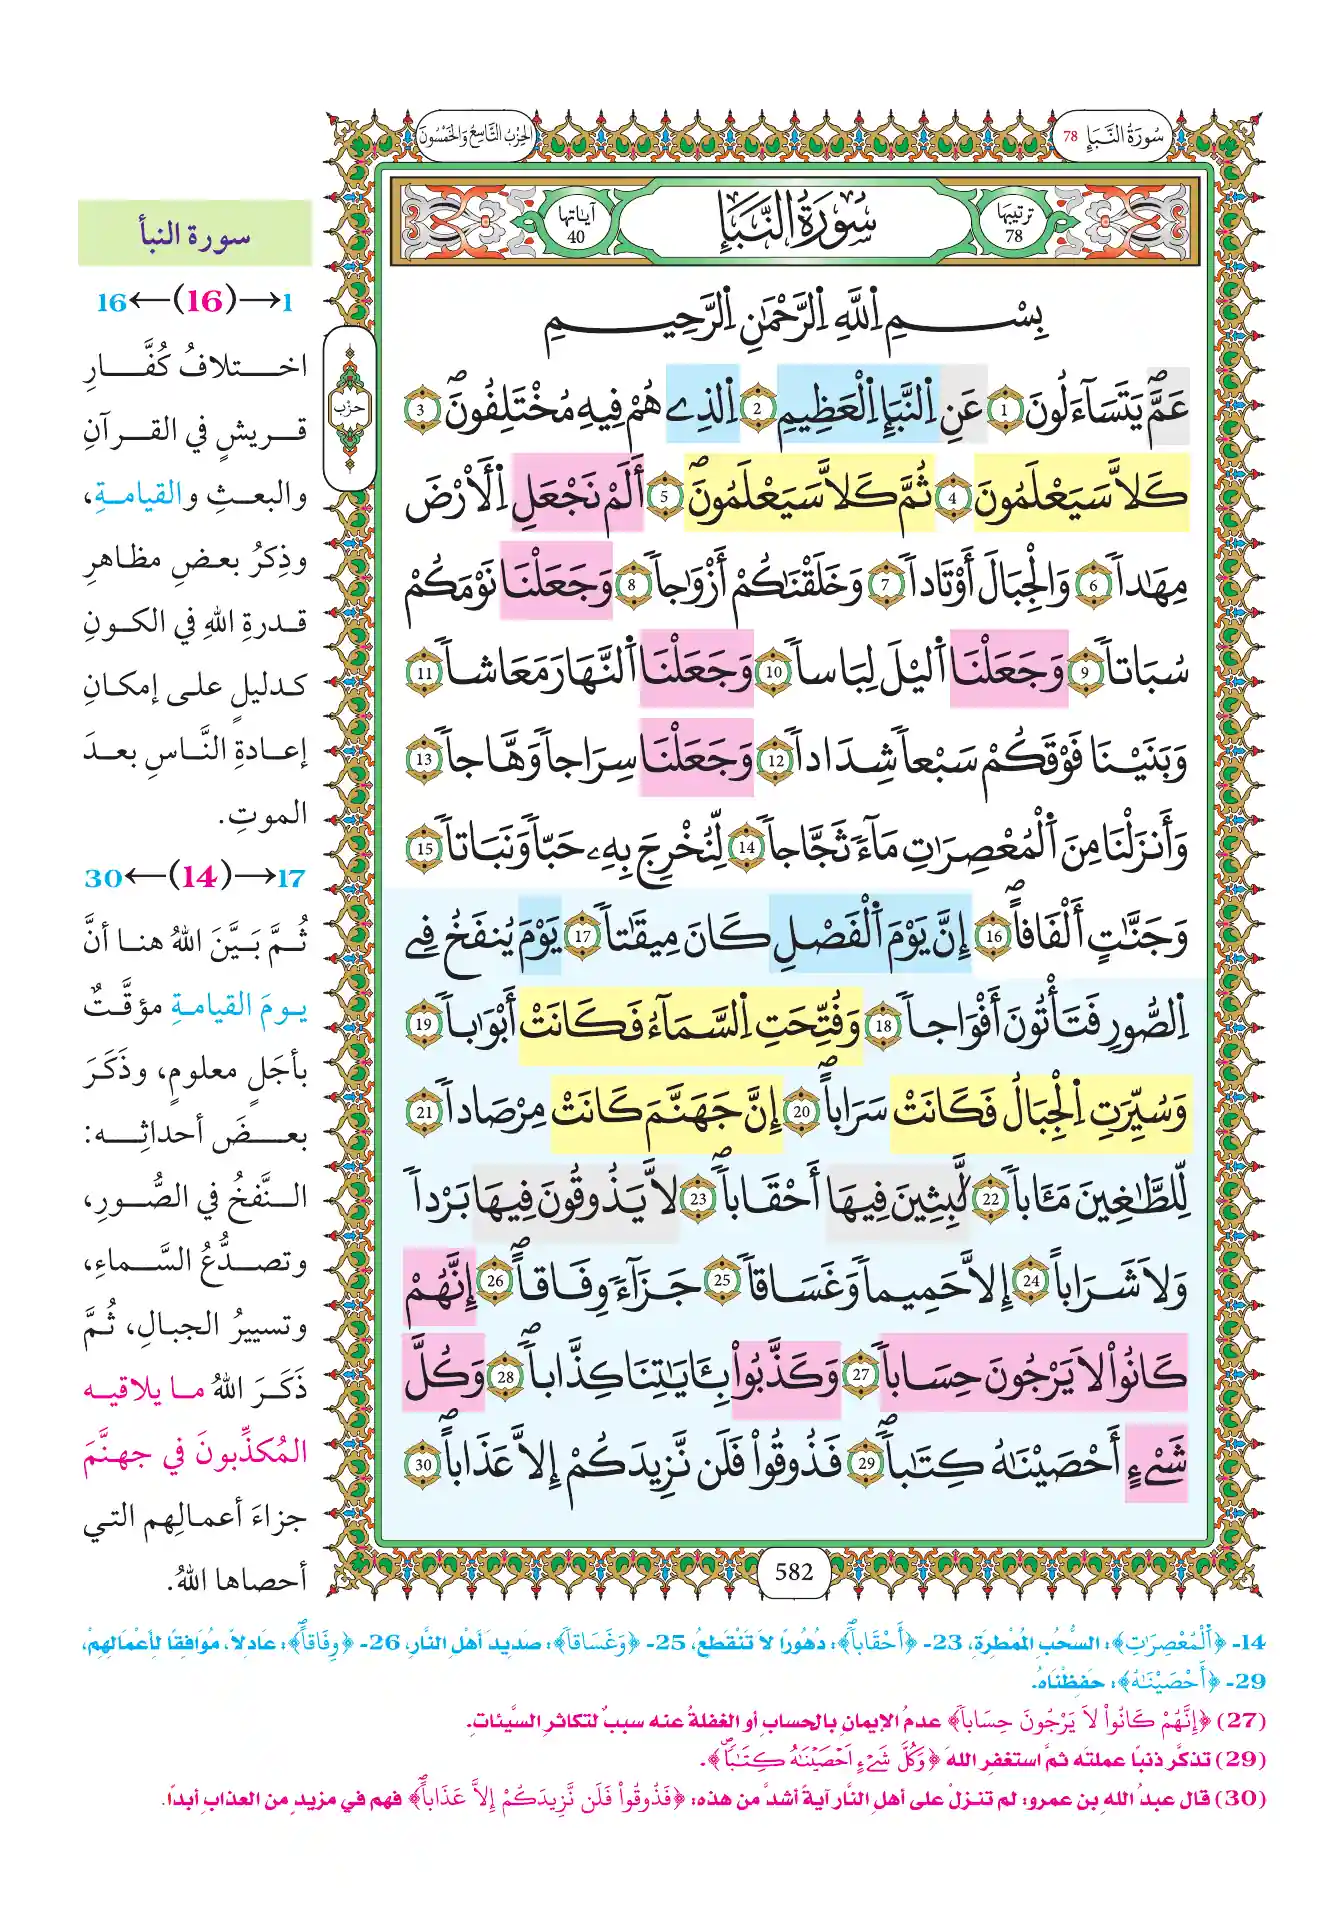 سُورَةُ النَّبَإِ 78
الحِزْبُ التَّاسِعُ وَالخَمْسُونَ
ترتيبها 78
سُورَةُ النَّبَإِ
آياتها 40
بِسْمِ اِللَّهِ اِلرَّحْمَٰنِ اِلرَّحِيمِ
عَمَّ يَتَسَآءَلُونَ 1 عَنِ اِلنَّبَإِ اِلْعَظِيمِ 2 اِلذِے هُمْ فِيهِ مُخْتَلِفُونَ 3
كَلاَّ سَيَعْلَمُونَ 4 ثُمَّ كَلاَّ سَيَعْلَمُونَ 5 أَلَمْ نَجْعَلِ اِلْأَرْضَ
مِهَٰداٗ 6 وَالْجِبَالَ أَوْتَاداٗ 7 وَخَلَقْنَٰكُمْ أَزْوَٰجاٗ 8 وَجَعَلْنَا نَوْمَكُمْ
سُبَاتاٗ 9 وَجَعَلْنَا اَليْلَ لِبَاساٗ 10 وَجَعَلْنَا اَلنَّهَارَ مَعَاشاٗ 11
وَبَنَيْنَا فَوْقَكُمْ سَبْعاٗ شِدَاداٗ 12 وَجَعَلْنَا سِرَاجاٗ وَهَّاجاٗ 13
وَأَنزَلْنَا مِنَ اَلْمُعْصِرَٰتِ مَآءٗ ثَجَّاجاٗ 14 لِّنُخْرِجَ بِهِۦ حَبّاٗ وَنَبَاتاٗ 15
وَجَنَّٰتٍ أَلْفَافاً 16 إِنَّ يَوْمَ اَلْفَصْلِ كَانَ مِيقَٰتاٗ 17 يَوْمَ يُنفَخُ فِے
اِلصُّورِ فَتَأْتُونَ أَفْوَاجاٗ 18 وَفُتِّحَتِ اِلسَّمَآءُ فَكَانَتْ أَبْوَٰباٗ 19
وَسُيِّرَتِ اِلْجِبَالُ فَكَانَتْ سَرَاباً 20 إِنَّ جَهَنَّمَ كَانَتْ مِرْصَاداٗ 21
لِّلطَّٰغِينَ مَـَٔاباٗ 22 لَّٰبِثِينَ فِيهَا أَحْقَاباٗ 23 لاَّ يَذُوقُونَ فِيهَا بَرْداٗ
وَلاَ شَرَاباً 24 إِلاَّ حَمِيماٗ وَغَسَاقاٗ 25 جَزَآءٗ وِفَاقاً 26 إِنَّهُمْ
كَانُواْ لاَ يَرْجُونَ حِسَاباٗ 27 وَكَذَّبُواْ بِـَٔايَٰتِنَا كِذَّاباٗ 28 وَكُلَّ
شَےْءٍ أَحْصَيْنَٰهُ كِتَٰباٗ 29 فَذُوقُواْ فَلَن نَّزِيدَكُمْ إِلاَّ عَذَاباً 30
حزب
582
سورة النبأ
1→(16)←16
اختلافُ كُفَّارِ
قريشٍ في القرآنِ
والبعثِ والقيامةِ،
وذِكرُ بعضِ مظاهرِ
قدرةِ اللهِ في الكونِ
كدليلٍ على إمكانِ
إعادةِ النَّاسِ بعدَ
الموتِ.
17→(14)←30
ثُمَّ بَيَّنَ اللهُ هنا أنَّ
يومَ القيامةِ مؤقَّتٌ
بأجَلٍ معلومٍ، وذَكَرَ
بعضَ أحداثِه:
النَّفخُ في الصُّورِ،
وتصدُّعُ السَّماءِ،
وتسييرُ الجبالِ، ثُمَّ
ذَكَرَ اللهُ ما يلاقيه
المُكذِّبونَ في جهنَّمَ
جزاءَ أعمالِهم التي
أحصاها اللهُ.
14- ﴿اَلْمُعْصِرَٰتِ﴾: السُّحُبِ المُمْطِرَةِ، 23- ﴿أَحْقَاباٗ﴾: دُهُورًا لَا تَنْقَطِعُ، 25- ﴿وَغَسَاقاٗ﴾: صَدِيدَ أَهْلِ النَّارِ، 26- ﴿وِفَاقاً﴾: عَادِلاً، مُوَافِقًا لِأَعْمَالِهِمْ،
29- ﴿أَحْصَيْنَٰهُ﴾: حَفِظْنَاهُ.
(27) ﴿إِنَّهُمْ كَانُواْ لاَ يَرْجُونَ حِسَاباٗ﴾ عدمُ الإيمانِ بالحسابِ أو الغفلةُ عنه سببٌ لتكاثرِ السيِّئاتِ.
(29) تذكَّر ذنبًا عملتَه ثمَّ استغفرِ اللهَ ﴿وَكُلَّ شَےْءٍ اَحْصَيْنَٰهُ كِتَٰباٗ﴾.
(30) قال عبدُ اللهِ بن عمرو: لم تنزلْ على أهلِ النَّار آيةٌ أشدَّ من هذه: ﴿فَذُوقُواْ فَلَن نَّزِيدَكُمْ إِلاَّ عَذَاباً﴾ فهم في مزيدٍ من العذابِ أبداً.